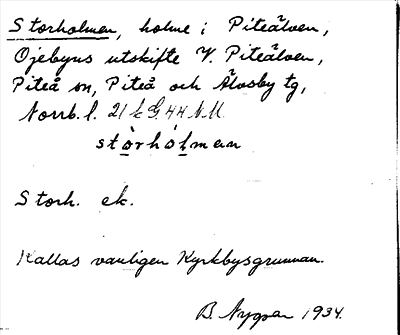 Storholmen, holme i Piteälven,
Öjebyns utskifte V. Piteälven,
Piteå sn, Piteå och Älvsby tg,
Norrb. l. 21 k G 44 N.M.
stòrhólmen
Storh. ek.
Kallas vanligen Kyrkbysgrunnan.
B. Nygren 1934.